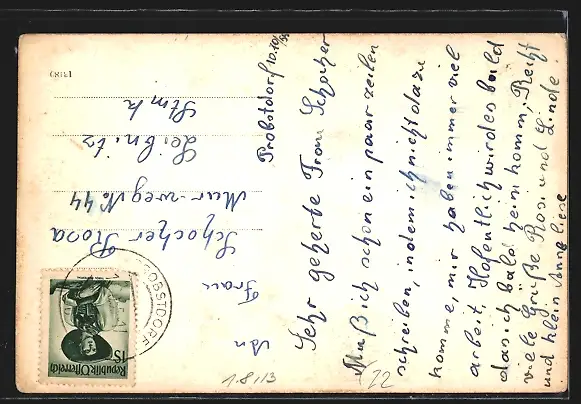 Probstdorf, 10.10/
Sehr geherte Frau Schocher
Muß ich schon ein paar zeilen
schreiben, indem ich nicht dazu
komme, mir haben immer viel
arbeit. Hofentlich wird es bald
das ich bald heim komm, Recht
viele Grüße Rosi und Linde.
und klein Anneliese
An
Frau
Schocher Rosa
Mur-weg No 44
Leibnitz
Stmk
13183
REPUBLIK ÖSTERREICH
1S
OBSTDORF
1.8./13
/22